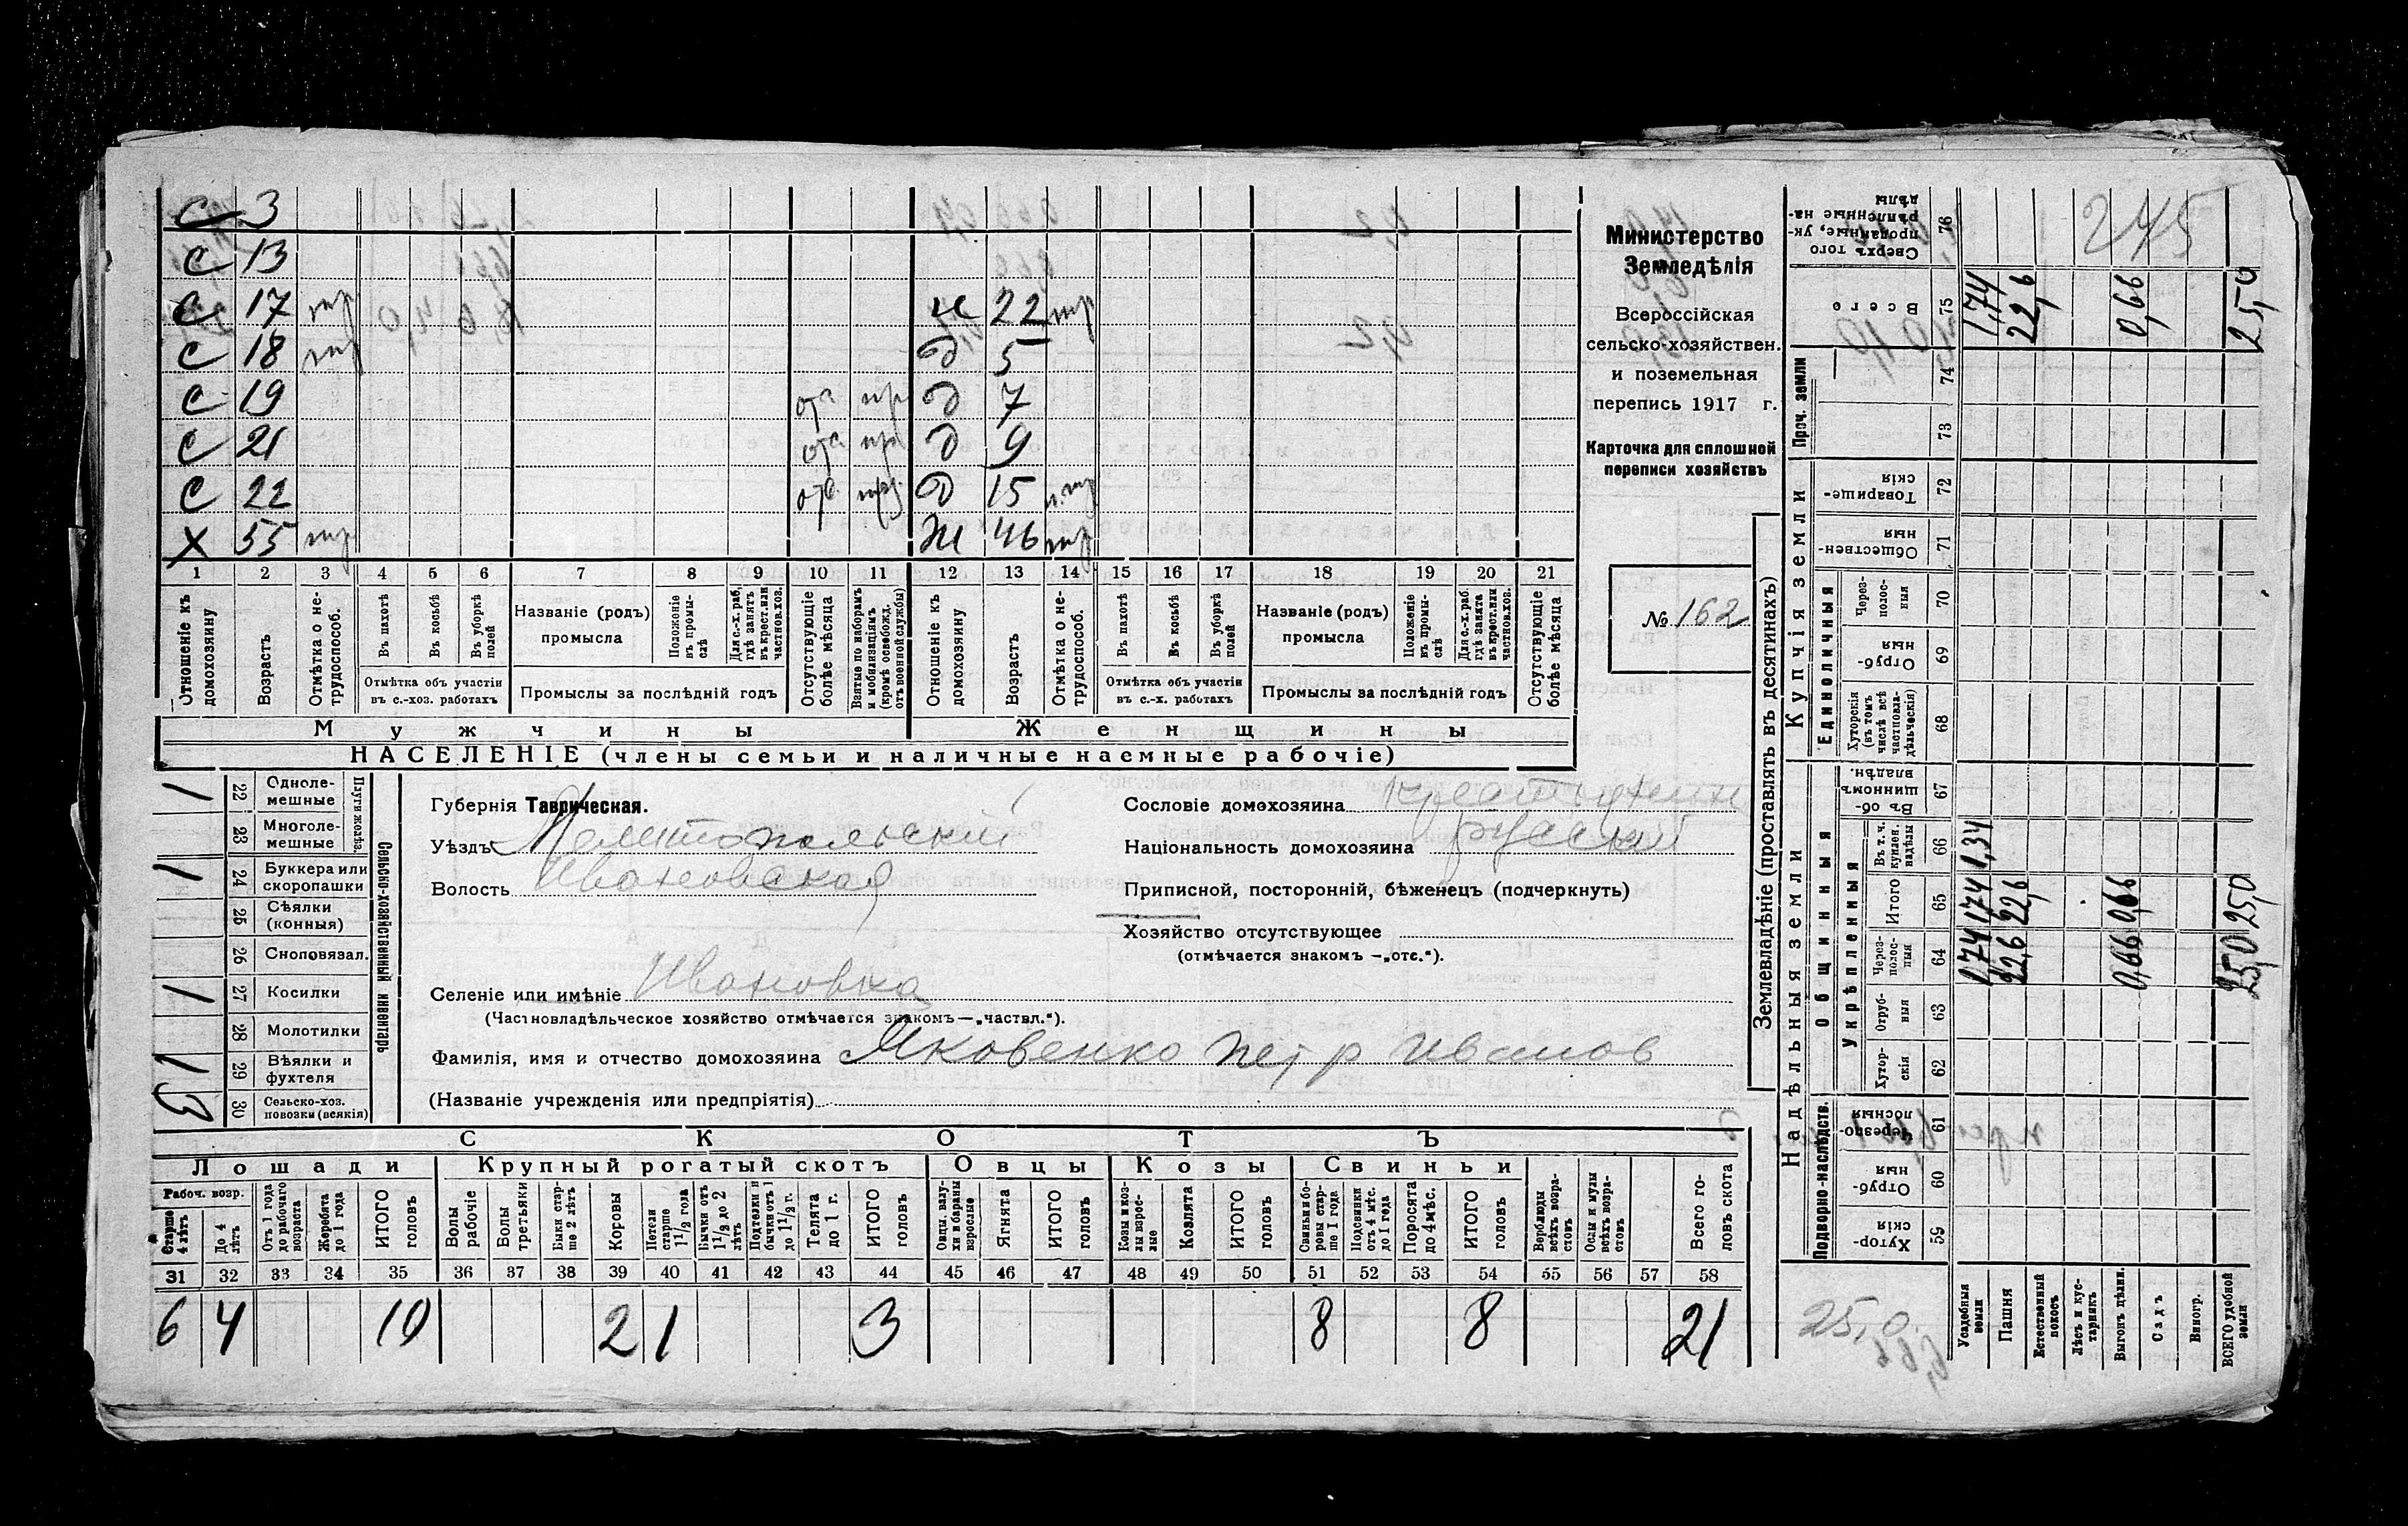 С 3
С 13
С 17 тр н 22 тр
С 18 тр д 5
С 19 отс пр д 7
С 21 отс пр д 9
С 22 отс пр д 15 п. тр
Х 55 тр Ж 46 тр
1 2 3 4 5 6 7 8 9 10 11 12 13 14 15 16 17 18 19 20 21
Отношеніе къ домохозяину
Возрастъ
Отмѣтка о не-трудоспособ.
Въ пахотѣ
Въ косьбѣ
Въ уборкѣ полей
Отмѣтка объ участіи въ с.-хоз. работахъ
Названіе (родъ) промысла
Положеніе въ промы-слѣ
Для с.-х. раб. гдѣ занятъ въ крест. или частнов. хоз.
Промыслы за послѣдній годъ
Отсутствующіе болѣе мѣсяца
Взятые по наборамъ и мобилизаціямъ (кромѣ освобожд. отъ военной службы)
Отношеніе къ домохозяину
Возрастъ
Отмѣтка о не-трудоспособ.
Въ пахотѣ
Въ косьбѣ
Въ уборкѣ полей
Отмѣтка объ участіи въ с.-х. работахъ
Названіе (родъ) промысла
Положеніе въ промы-слѣ
Для с.-х. раб. гдѣ занята въ крест. или частнов. хоз.
Промыслы за послѣдній годъ
Отсутствующіе болѣе мѣсяца
Мужчины Женщины
НАСЕЛЕНІЕ (члены семьи и наличные наемные рабочіе)
Министерство
Земледѣлія
Всероссійская
сельско-хозяйствен.
и поземельная
перепись 1917 г.
Карточка для сплошной
переписи хозяйствъ
№ 162
Сельско-хозяйственный инвентарь
Плуги желѣз.
1 22 Одноле-мешные
23 Многоле-мешные
1 24 Буккера или скоропашки
25 Сѣялки (конныя)
26 Сноповязал.
1 27 Косилки
28 Молотилки
1 29 Вѣялки и фухтеля
30 Сельско-хоз. повозки (всякія)
Губернія Таврическая.
Уѣздъ Мелитопольский
Волость Ивановская
Селеніе или имѣніе Ивановка
(Частновладѣльческое хозяйство отмѣчается знакомъ—„частвл.“).
Фамилія, имя и отчество домохозяина Яковенко Петр Иванов
(Названіе учрежденія или предпріятія)
Сословіе домохозяина крестьянин
Національность домохозяина русский
Приписной, посторонній, бѣженецъ (подчеркнуть)
Хозяйство отсутствующее
(отмѣчается знакомъ —„отс.“).
СКОТЪ
Лошади Крупный рогатый скотъ Овцы Козы Свиньи
Рабоч. возр.
Старше 4 лѣтъ
До 4 лѣтъ
Отъ 1 года до рабочаго возраста
Жеребята до 1 года
ИТОГО головъ
Волы рабочіе
Волы третьяки
Быки стар-ше 2 лѣтъ
Коровы
Нетели старше 1 1/2 года
Бычки отъ 1 1/2 до 2 лѣтъ
Подтелки и бычки отъ 1 до 1 1/2 г.
Телята до 1 г.
ИТОГО головъ
Овцы, валу-хи и бараны взрослые
Ягнята
ИТОГО головъ
Козы и коз-лы взрос-лые
Козлята
ИТОГО головъ
Свиньи и бо-ровы стар-ше 1 года
Подсвинки отъ 4 мѣс. до 1 года
Поросята до 4 мѣс.
ИТОГО головъ
Верблюды всѣхъ возра-стовъ
Ослы и мулы всѣхъ возра-стовъ
Всего го-ловъ скота
31 32 33 34 35 36 37 38 39 40 41 42 43 44 45 46 47 48 49 50 51 52 53 54 55 56 57 58
6 4 10 2 1 3 8 8 21
Землевладѣніе (проставлять въ десятинахъ)
Надѣльныя земли
Купчія земли
Проч. земли
Подворно-наслѣдств.
Общинныя
Укрѣпленныя
Единоличныя
76 Сверхъ того проданные, ук-рѣпленные на-дѣлы 245
75 Всего 1,74 22,6 0,66 25,0
74
73
72 Товарище-скія
71 Обществен-ныя
70 Через-полос-ныя
69 Отруб-ныя
68 Хуторскія (въ томъ числѣ всѣ частновла-дѣльческія)
67 Въ об-щинномъ владѣн.
66 Въ т. ч. куплен. надѣлы 1,34
65 Итого 1,74 22,6 0,66 25,0
64 Через-полос-ныя 1,74 22,6 0,66 25,0
63 Отруб-ныя
62 Хутор-скія
61 Черезпо-лосныя
60 Отруб-ныя
59 Хутор-скія
25,0
Усадебныя земли
Пашня
Естественный покосъ
Лѣсъ и кус-тарникъ
Выгонъ дѣлин.
Садъ
Виногр.
ВСЕГО удобной земли